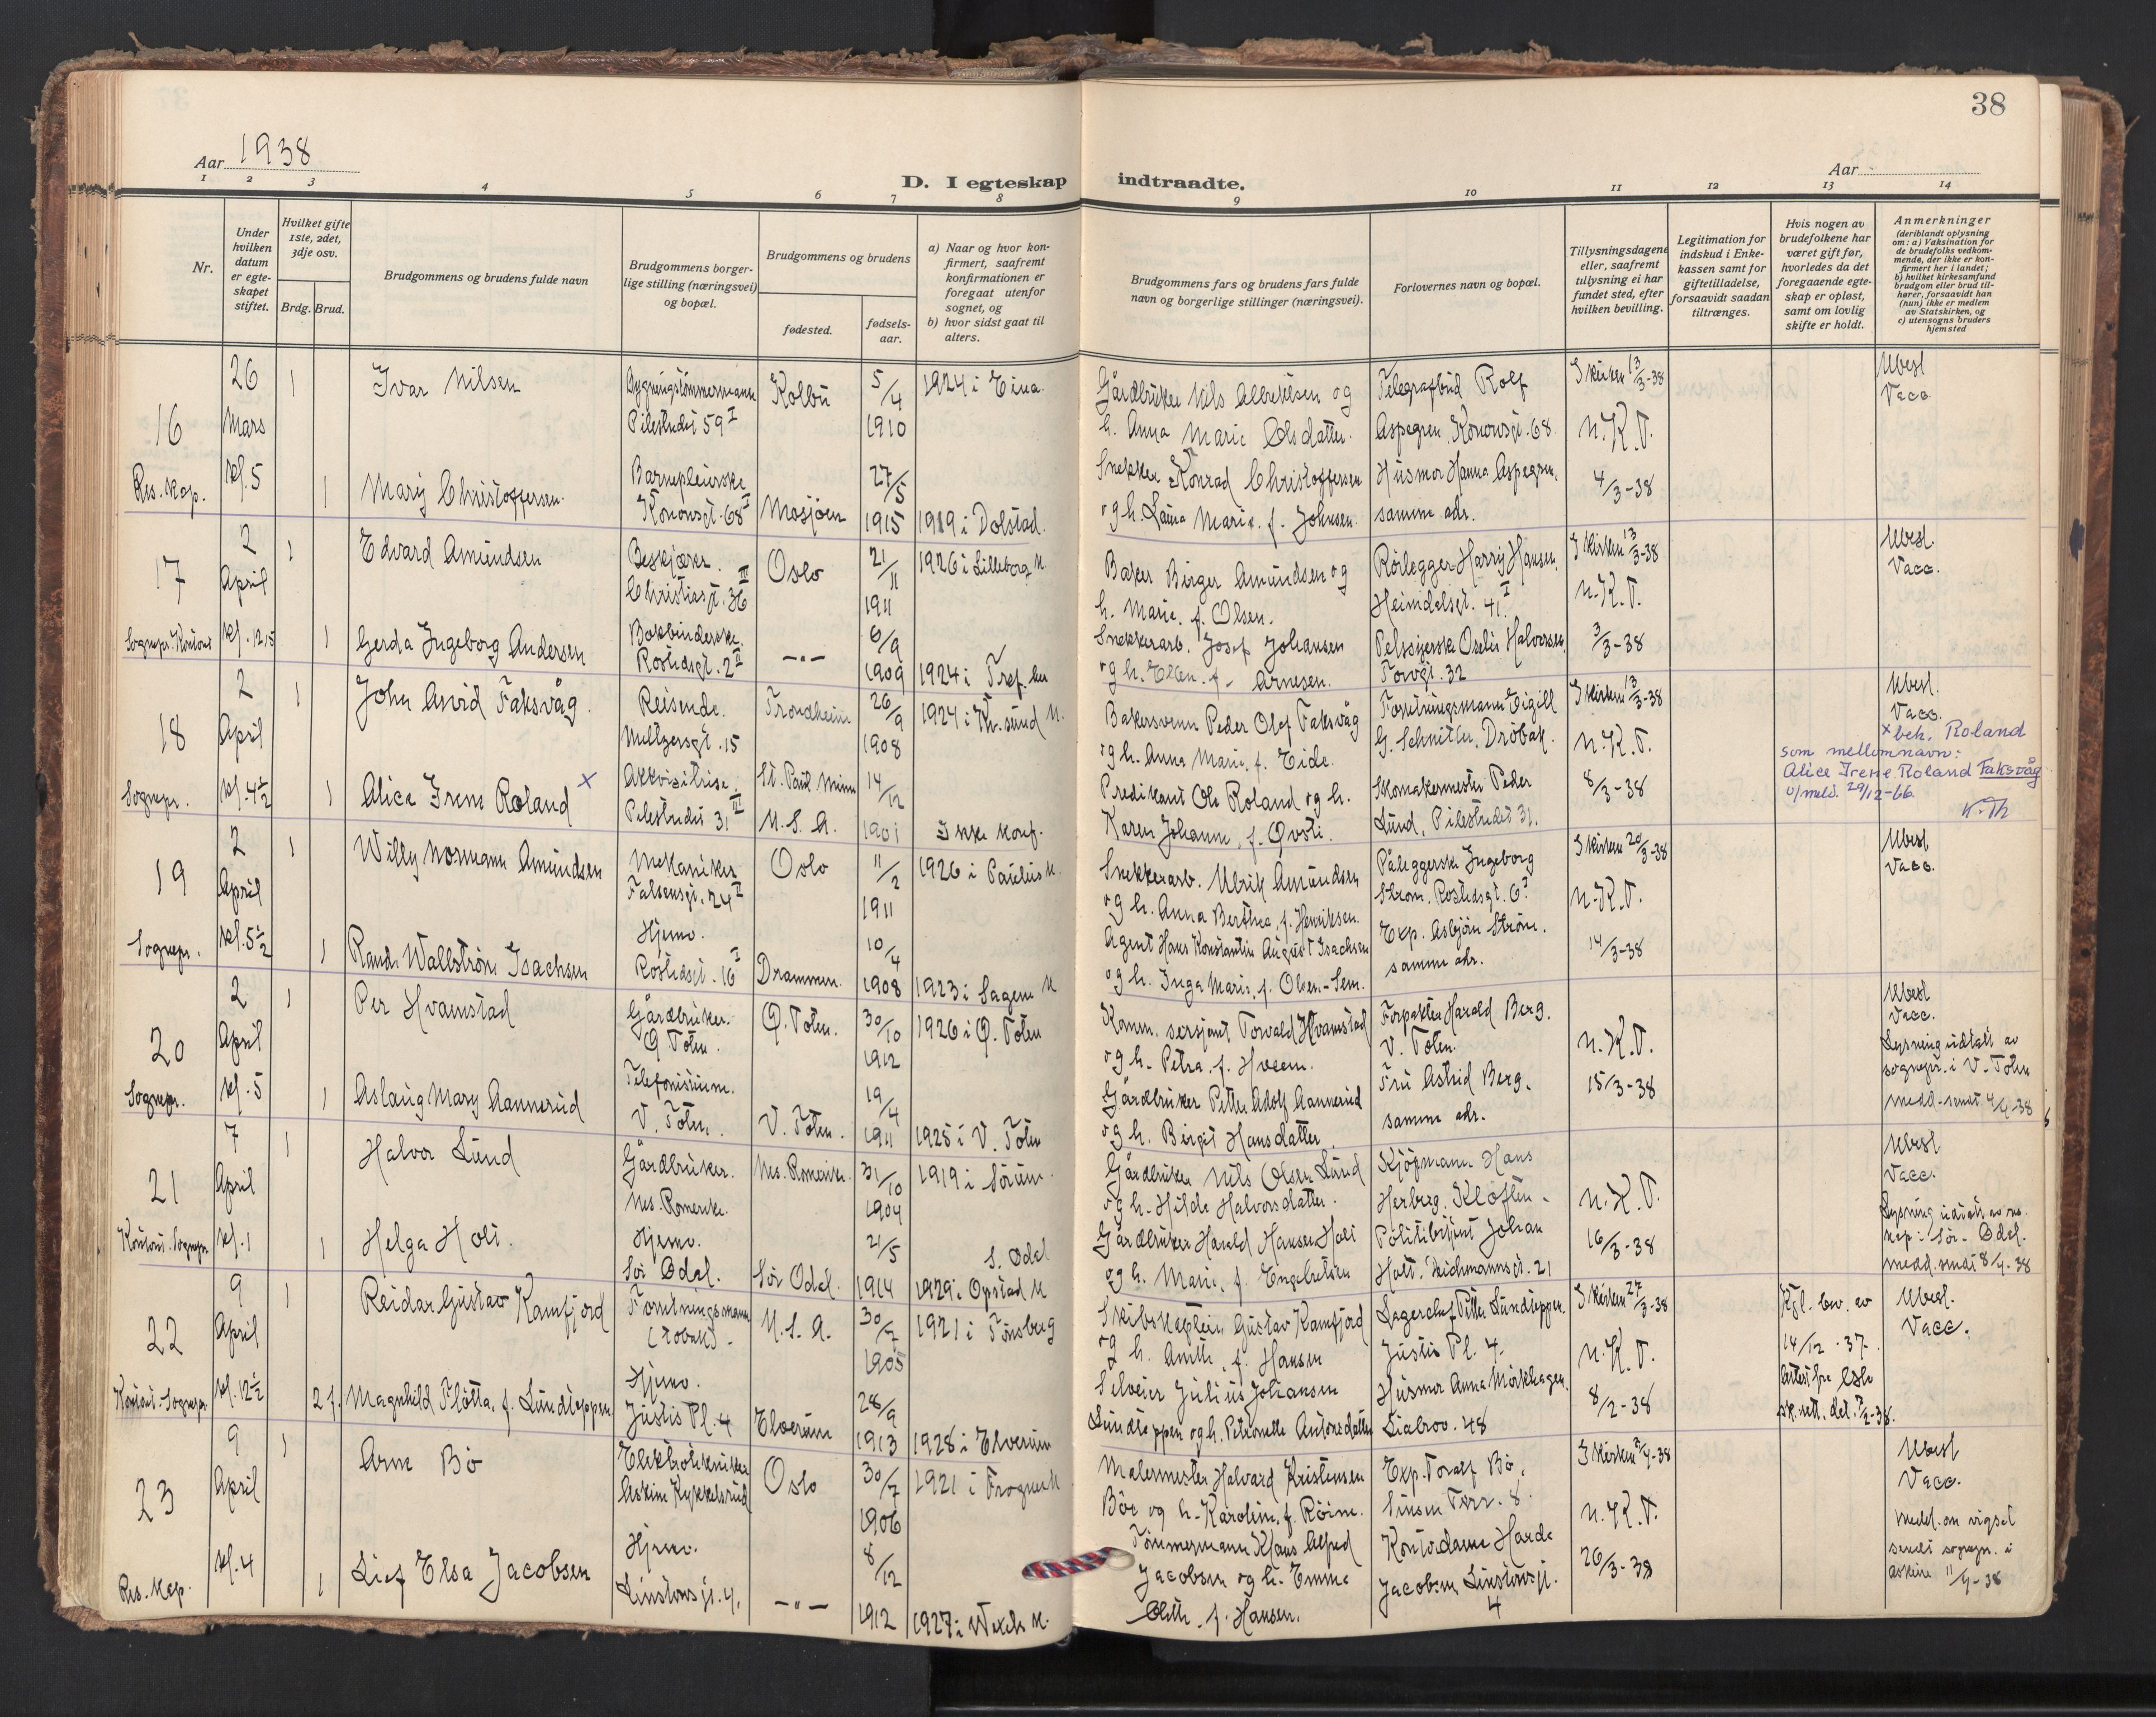 38
Aar 1938
D. I egteskap indtraadte.
Aar
1 2 3 4 5 6 7 8 9 10 11 12 13 14
Nr.
Under hvilken datum er egteskapet stiftet.
Hvilket gifte 1ste, 2det, 3dje osv.
Brdg. Brud.
Brudgommens og brudens fulde navn
Brudgommens borgerlige stilling (næringsvei) og bopæl.
Brudgommens og brudens
fødested.
fødselsaar.
a) Naar og hvor konfirmert, saafremt konfirmationen er foregaat utenfor sognet, og
b) hvor sidst gaat til alters.
Brudgommens fars og brudens fars fulde navn og borgerlige stillinger (næringsvei).
Forlovernes navn og bopæl.
Tillysningsdagene eller, saafremt tillysning ei har fundet sted, efter hvilken bevilling.
Legitimation for indskud i Enkekassen samt for giftetilladelse, forsaavidt saadan tiltrænges.
Hvis nogen av brudefolkene har været gift før, hvorledes da det foregaaende egteskap er opløst, samt om lovlig skifte er holdt.
Anmerkninger
(deriblandt oplysning om: a) Vaksination for de brudefolks vedkommende, der ikke er konfirmert her i landet;
b) hvilket kirkesamfund brudgom eller brud tilhører, forsaavidt han (hun) ikke er medlem av Statskirken, og
c) utensogns bruders hjemsted
16
Res. Kap.
26 Mars kl. 5
1 Ivar Nilsen
Bygningstømmermann
Pilestredet 59 I
Kolbu
5/4 1910
1924 i Eina.
Gårdbruker Nils Albriktsen og
h. Anna Marie Olsdatter.
Telegrafbud Rolf
Aspegren, Kononsgt. 68
I kirken 13/3-38
N.K.T.
Ubesl.
Vacc.
1 Mary Christoffersen.
Barnepleierske
Kononsgt. 68 I
Mosjøen
27/5 1915
1919 i Dolstad.
Snekker Konrad Christoffersen
og h. Laura Marie, f. Johnsen
Husmor Hanna Aspegren,
samme adr.
4/3-38
17
Sognepr. Kontor
2 April kl. 12.15
1 Edvard Amundsen
Beskjærer.
Christiesgt. 36 III
Oslo
21/11 1911
1926 i Lilleborg k.
Baker Birger Amundsen og
h. Marie, f. Olsen.
Rørlegger Harry Hansen,
Heimdalsgt. 41 I
I kirken 13/3-38
N.K.T.
Ubesl.
Vacc.
1 Gerda Ingeborg Andersen
Bokbinderske.
Rostedsgt. 2 II
—"—
6/9 1909
1924 i Tref. ker
Snekkerarb. Josef Johansen
og h. Ellen, f. Arnesen.
Pelssyerske Oselie Halvorsen,
Torvgt. 32
3/3-38
18
Sognepr.
2 April kl. 4½
1 John Arvid Faksvåg.
Reisende.
Meltzersgt. 15
Trondheim
26/9 1908
1924 i Kr.sund N.
Bakersvenn Peder Olaf Faksvåg
og h. Anna Marie, f. Eide.
Forretningsmann Eigill
G. Schnitler, Drøbak.
I kirken 13/3-38
N.K.T.
Ubesl.
Vacc.
x beh. Roland
som mellomnavn:
Alice Irene Roland Faksvåg
v/meld. 29/12-66.
K.Th
1 Alice Irene Roland x
Akkvisitrise.
Pilestredet 31 III
St. Paul Minn
U.S.A.
14/12 1901
Ikke konf.
Predikant Ole Roland og h.
Karen Johanne, f. Qvoli.
Skomakermester Peder
Lund, Pilestredet 31.
8/3-38
19
Sognepr.
2 April kl. 5½
1 Willy Normann Amundsen
Mekaniker
Falsensgt. 24 II
Oslo
11/2 1911
1926 i Paulus k.
Snekkerarb. Ulrik Amundsen
og h. Anna Berthea, f. Henriksen.
Påleggerske Ingeborg
Strøm, Rostedsgt. 6 I
I kirken 20/3-38
N.K.T.
Ubesl.
Vacc.
1 Randi Wallstrøm Isachsen
Hjemv.
Rostedsgt. 16 I
Drammen.
10/4 1908
1923 i Sagene k
Agent Hans Konstantin August Isachsen
og h. Inga Marie, f. Olsen-Sem.
Exp. Asbjørn Strøm.
samme adr.
14/3-38
20
Sognepr.
2 April kl. 5
1 Per Hvamstad
Gårdbruker.
Ø. Toten.
Ø. Toten.
30/10 1912
1926 i Ø. Toten
Komm. sersjant Torvald Hvamstad
og h. Petra, f. Hveem.
Forpakter Harald Berg.
V. Toten.
N.K.T.
Ubesl
Vacc.
Lysning utstedt av
sognepr. i V. Toten
medd. sendt 4/4-38
1 Aslaug Mary Aannerud
Telefonistinne.
V. Toten.
V. Toten.
19/4 1911
1925 i V. Toten
Gårdbruker Petter Adolf Aannerud
og h. Birgit Hansdatter.
Fru Astrid Berg.
samme adr.
15/3-38
21
Kontor. Sognepr.
7 April kl. 1
1 Halvor Lund
Gårdbruker.
Nes. Romerike.
Nes. Romerike.
31/10 1904
1919 i Sørum.
Gårdbruker Nils Olsen Lund
og h. Hilda Halvorsdatter.
Kjøpmann Hans
Herberg. Kløften.
N.K.T.
Ubesl
Vacc.
Lysning utstedt av res.
kap i Sør-Odal.
medd. sendt 8/4-38
1 Helga Holi.
Hjemv.
Sør Odal.
Sør Odal.
21/5 1914
S. Odal
1929 i Opstad k
Gårdbruker Harald Hansen Holi
og h. Marie, f. Engebretsen
Politibetjent Johan
Holt. Deichmannsgt. 21
16/3-38
22
Kontor. Sognepr.
9 April kl. 12½
1 Reidar Gustav Ramfjord
Forretningsmann
(Tobakk).
U.S.A.
30/7 1905
1921 i Tønsberg
Skibskaptein Gustav Ramfjord
og h. Anitte, f. Hansen
Lagerchef Petter Lundteppen.
Justis Pl. 4.
I kirken 27/3-38
N.K.T.
Kgl. bev. av
14/12 -37.
Attest fra Oslo
sk.rett. dat. 7/2-38.
Ubesl.
Vacc.
2 f. Magnhild Fløtta, f. Lundteppen
Hjemv.
Justis Pl. 4
Elverum
28/9 1913
1928 i Elverum
Selveier Julius Johansen
Lundteppen og h. Petronelle Antonsdatter
Husmor Anna Mørkhagen.
Liabrov. 48
8/2-38
23
Res. Kap.
9 April kl. 4
1 Arne Bö
Elektrotekniker
Askim Kykkelsrud
Oslo
30/7 1906
1921 i Frogner k
Malermester Halvard Kristensen
Böe og h. Karoline, f. Röine.
Exp. Toralf Bö.
Sinsen Terr. 8.
I kirken 3/4-38
N.K.T.
Ubesl
Vacc.
Medd. om vigsel
sendt sognepr. i
Askim 11/4-38
1 Lief Elsa Jacobsen
Hjemv.
Linstowsgt. 4.
—"—
8/12 1912
1927 i Wexels k.
Tømmermann Klaus Alfred
Jacobsen og h. Emma
Olette f. Hansen.
Kontordame Harda
Jacobsen Linstowsgt.
4
26/3-38